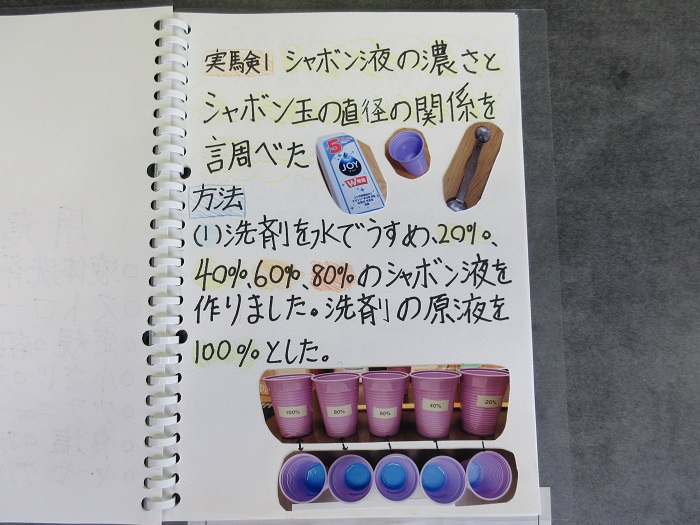 実験1 シャボン液の濃さと
シャボン玉の直径の関係を
調べた
5
JOY
W除菌
方法
(1)洗剤を水でうすめ、20%、
40%、60%、80%のシャボン液を
作りました。洗剤の原液を
100%とした。
100% 80% 60% 40% 20%